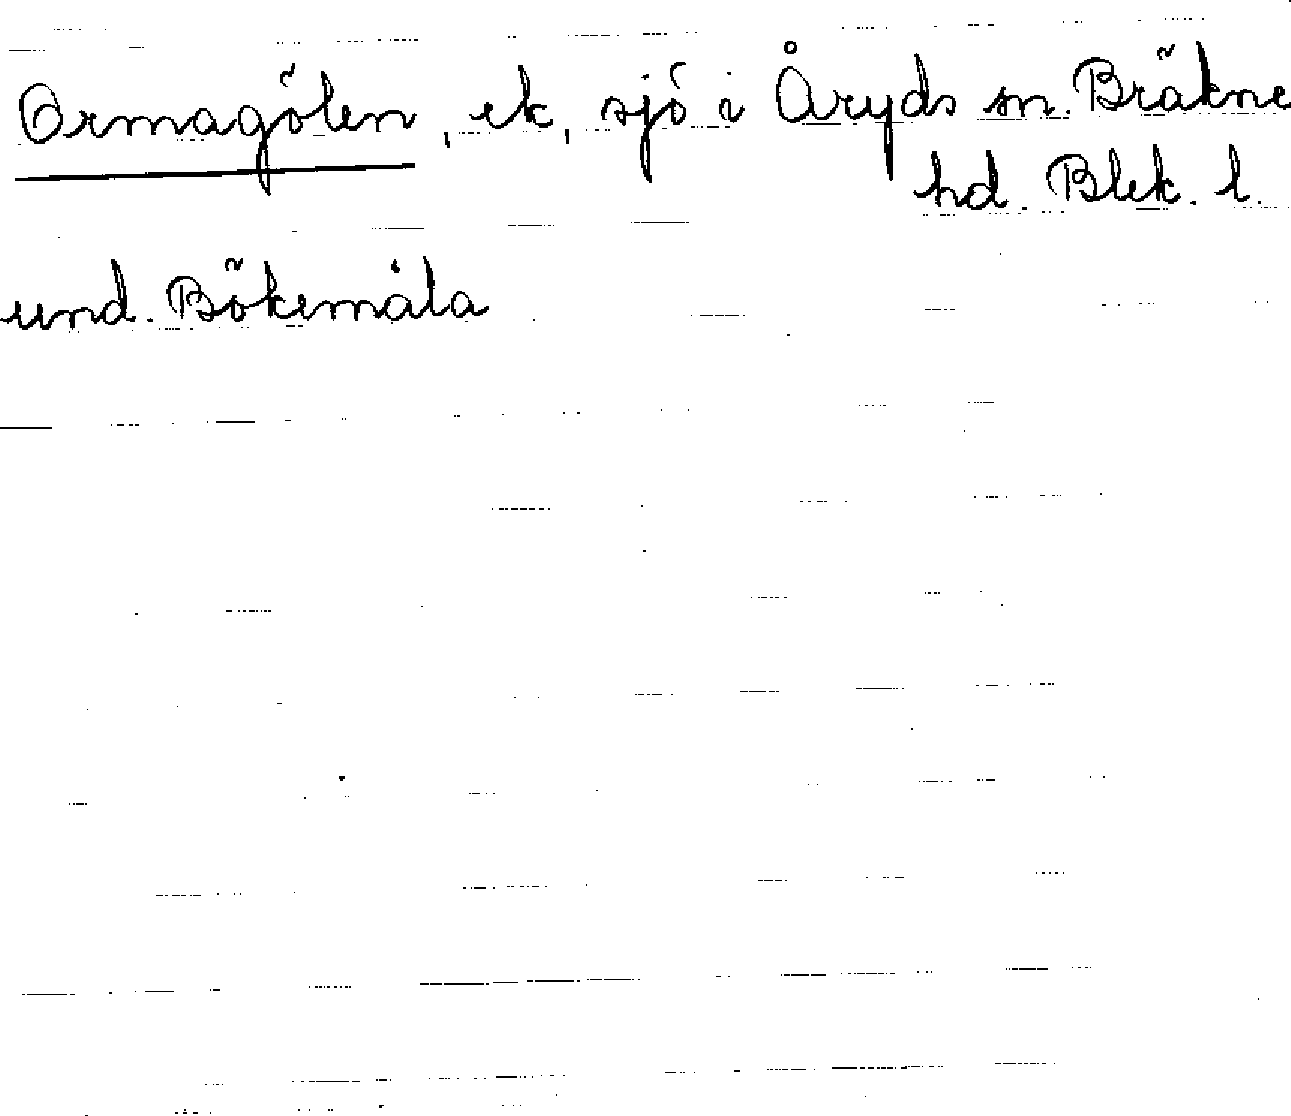 Ormagölen, ek, sjö i Åryds sn. Bräkne
hd. Blek. l.
und. Bökemåla